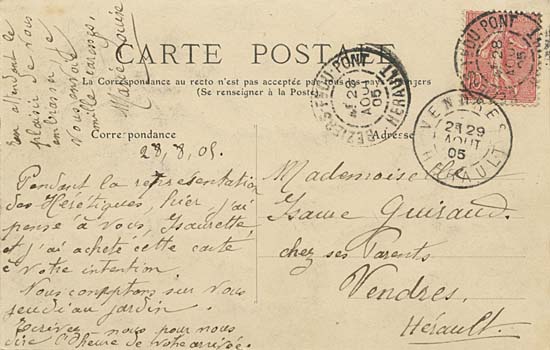 CARTE POSTALE
La Correspondance au recto n'est pas acceptée par tous les pays étrangers
(Se renseigner à la Poste)
Correspondance
Adresse
28, 8, 05.
Pendant la representation
des Hérétiques, hier, j'ai
pensé à vous, Isaurette
et j'ai acheté cette carte
à votre intention.
Nous comptons sur vous
jeudi au jardin.
Écrivez nous pour nous
dire l'heure de votre arrivée.
En attendant le
plaisir de vous
embrasser, je
vous envoie
mille caresses,
Marie Louise
Mademoiselle
Isaure Guiraud
chez ses Parents
Vendres,
Hérault.
BEZIERS-FG-DU-PONT
28
AOUT
05
HERAULT
DU PONT
28
AOUT
05
VENDRES
29
AOUT
05
HERAULT